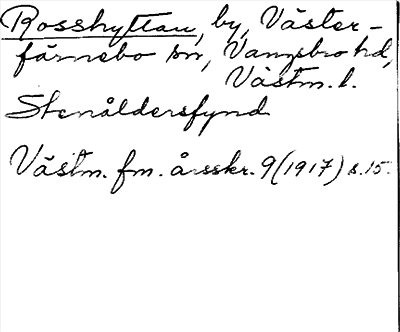 Rosshyttan, by, Väster-
färnebo sn, Vangsbro hd,
Västm. l.
Stenåldersfynd
Västm. fm. årsskr. 9 (1917) s. 15.